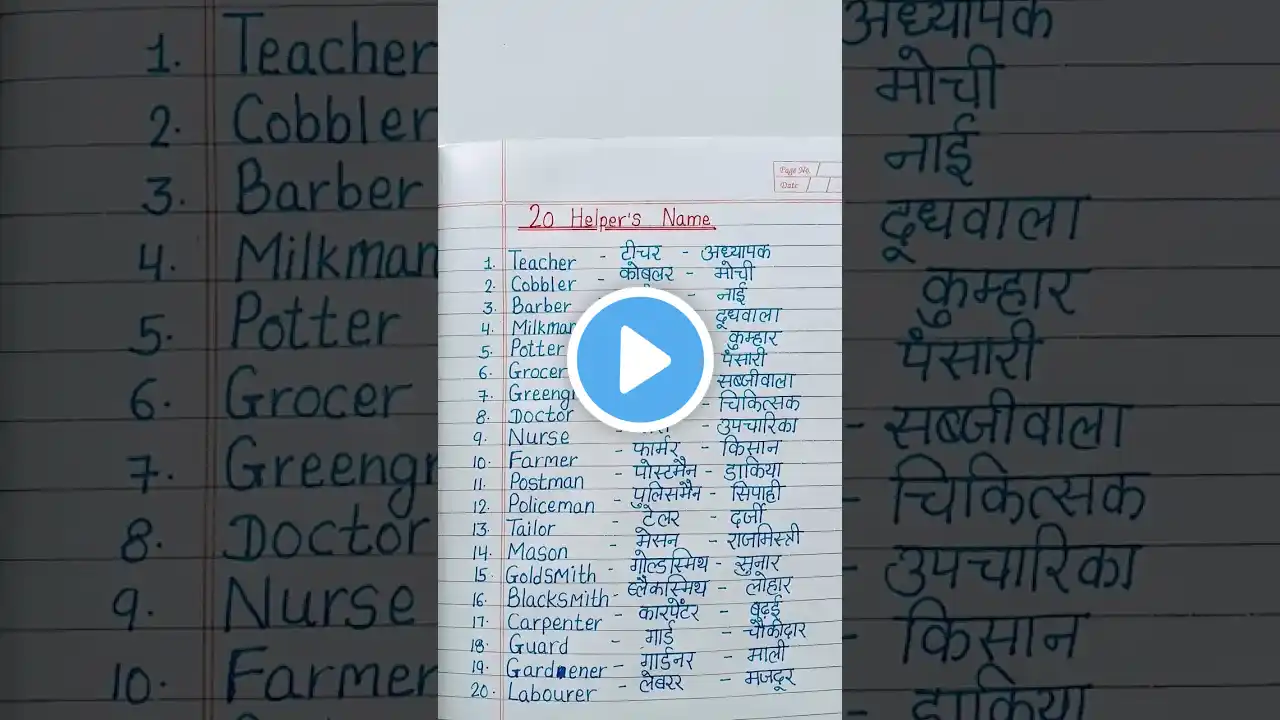 1. Teacher
2. Cobbler
3. Barber
4. Milkman
5. Potter
6. Grocer
7. Greengr
8. Doctor
9. Nurse
10. Farmer
Page No.
Date
20 Helper's Name
1. Teacher - टीचर - अध्यापक
2. Cobbler - कोबलर - मोची
3. Barber - नाई
4. Milkman दूधवाला
5. Potter कुम्हार
6. Grocer पंसारी
7. Greengr सब्जीवाला
8. Doctor - चिकित्सक
9. Nurse - - उपचारिका
10. Farmer - फार्मर - किसान
11. Postman - पोस्टमैन - डाकिया
12. Policeman - पुलिसमैन - सिपाही
13. Tailor - टेलर - दर्जी
14. Mason - मेसन - राजमिस्त्री
15. Goldsmith - गोल्डस्मिथ - सुनार
16. Blacksmith - ब्लैकस्मिथ - लोहार
17. Carpenter - कारपेंटर - बढ़ई
18. Guard - गार्ड - चौकीदार
19. Gardener - गार्डनर - माली
20. Labourer - लेबरर - मजदूर
अध्यापक
मोची
नाई
दूधवाला
कुम्हार
पंसारी
- सब्जीवाला
- चिकित्सक
- उपचारिका
- किसान
- डाकिया